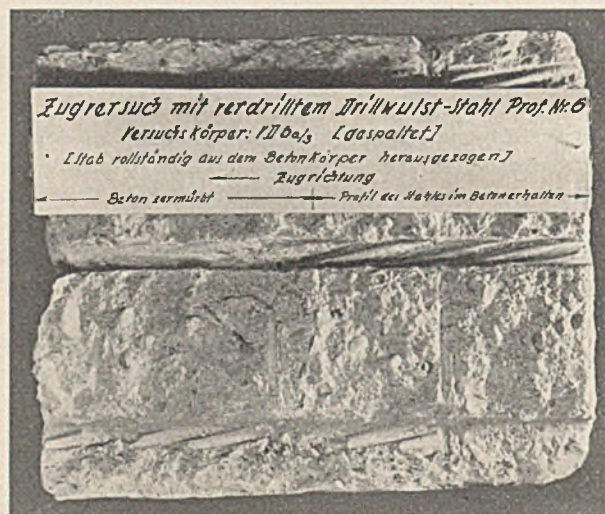 Zugversuch mit verdrilltem Drillwulst-Stahl Prof. Nr. 6
Versuchskörper: [gespaltet]
[Stab vollständig aus dem Betonkörper herausgezogen]
Zugrichtung
Beton zermürbt Profil des Stahles im Beton erhalten